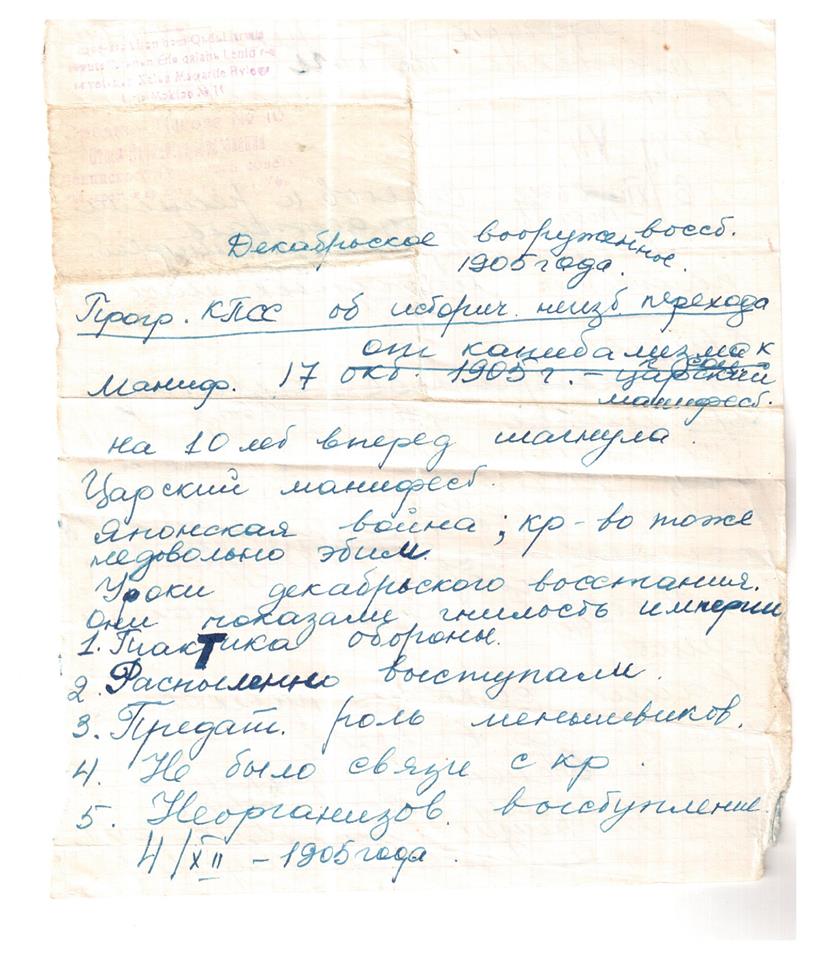 Декабрьское вооруженное восст.
1905 года.
Прогр. КПСС об историч. неизб. перехода
от капитализма к
соц.
Маниф. 17 окт. 1905 г. – царский
манифест.
на 10 лет вперед шагнула.
Царский манифест.
Японская война; кр-во тоже
недовольно этим.
Уроки декабрьского восстания.
Они показали гнилость империи
1. Тактика обороны.
2. Распыленно выступали.
3. Предат. роль меньшевиков.
4. Не было связи с кр.
5. Неорганизов. выступление.
4/XII – 1905 года.